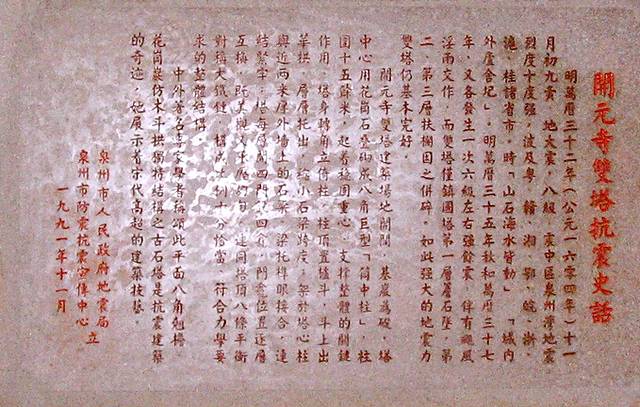 開元寺雙塔抗震史話
明萬曆三十二年(公元一六零四年)十一
月初九夜 地大震,八級 震中區泉州灣地震
烈度十度强,波及粤 贛、湘 鄂、皖、浙、
滬、桂諸省市,時「山石海水皆動」 「城内
外廬舍圮」 明萬曆三十五年秋和萬曆三十七
年,又各發生一次六級左右强餘震 伴有颶風
淫雨交作,而雙塔僅鎮國塔第一層蓋石墜,第
二、第三層扶欄因之併碎,如此强大的地震力
雙塔仍基本完好,
開元寺雙塔建築場地開闊,基礎為
中心用花崗石壘砌成八角巨型「筒中柱」,柱
圍十五餘米,起着穩固重心 支撑整體的關鍵
作用,塔身轉角立倚柱,柱頂置櫨斗,斗上出
華拱,層層托出,縮小石梁跨度,架於塔心柱
與近兩米厚外墻上的石梁,梁托榫眼接合,連
結緊牢,塔每層開四門 四龕,門龕位置逐層
互換,既美觀又
對稱大鐵鏈,構成 十分恰當,符合力學要
求的整體結構,
中外著名專家學者稱頌此平面八角
花崗岩仿木斗拱獨特結構之古石塔是抗震建築
的奇迹,她展示着宋代高超的建築技藝,
泉州市人民政府地震局
泉州市防震抗震宣傳中心 立
一九九一年十一月